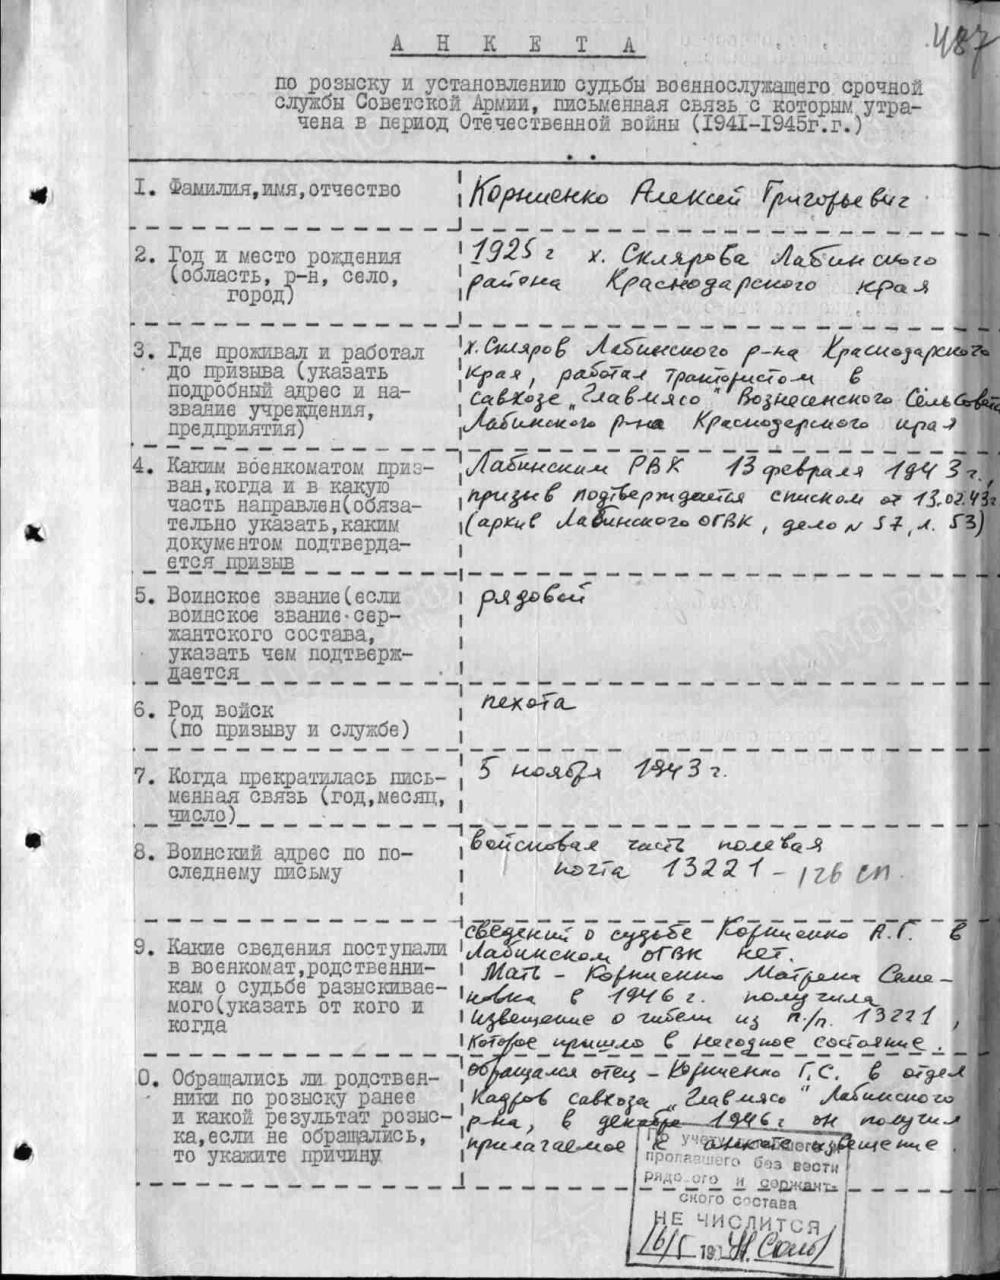 487
А Н К Е Т А
по розыску и установлению судьбы военнослужащего срочной
службы Советской Армии, письменная связь с которым утра-
чена в период Отечественной войны (1941-1945г.г.)
1. Фамилия,имя,отчество
Корниенко Алексей Григорьевич
2. Год и место рождения
(область, р-н, село,
город)
1925г х. Склярова Лабинского
района Краснодарского края
3. Где проживал и работал
до призыва (указать
подробный адрес и на-
звание учреждения,
предприятия)
х.Скляров Лабинского р-на Краснодарского
края, работал трактористом в
савхозе „Главмясо" Вознесенского Сельсовета
Лабинского р-на Краснодарского края
4. Каким военкоматом приз-
ван,когда и в какую
часть направлен(обяза-
тельно указать,каким
документом подтвержда-
ется призыв
Лабинским РВК 13 февраля 1943г.,
призыв подтверждается списком от 13.02.43г
(архив Лабинского ОГВК, дело № 57, л. 53)
5. Воинское звание(если
воинское звание сер-
жантского состава,
указать чем подтверж-
дается
рядовой
6. Род войск
(по призыву и службе)
пехота
7. Когда прекратилась пись-
менная связь (год,месяц,
число)
5 ноября 1943г.
8. Воинский адрес по по-
следнему письму
войсковая часть полевая
почта 13221 - 126 сп
9. Какие сведения поступали
в военкомат,родственни-
кам о судьбе разыскивае-
мого(указать от кого и
когда
сведений о судьбе Корниенко А.Г. в
Лабинском ОГВК нет.
Мать - Корниенко Матрена Семе-
новна в 1946г. получила
извещение о гибели из п./п. 13221,
которое пришло в негодное состояние.
0. Обращались ли родствен-
ники по розыску ранее
и какой результат розыс-
ка,если не обращались,
то укажите причину
обращался отец - Корниенко Г.С. в отдел
Кадров савхоза „Главмясо" Лабинского
р-на, в декабре 1946г он получил
прилагаемое к анкете извещение.
По учету
пропавшего без вести
рядового и сержант-
ского состава
НЕ ЧИСЛИТСЯ
16/I 19